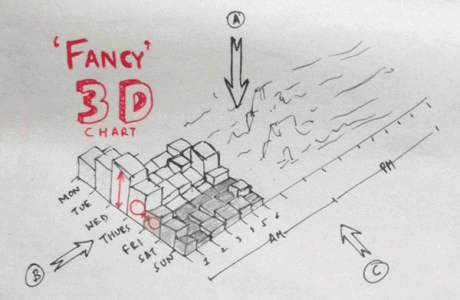 A
'FANCY'
3D
CHART
MON
TUE
WED
THURS
FRI
SAT
SUN
1
2
3
4
5
6
AM
PM
B
C